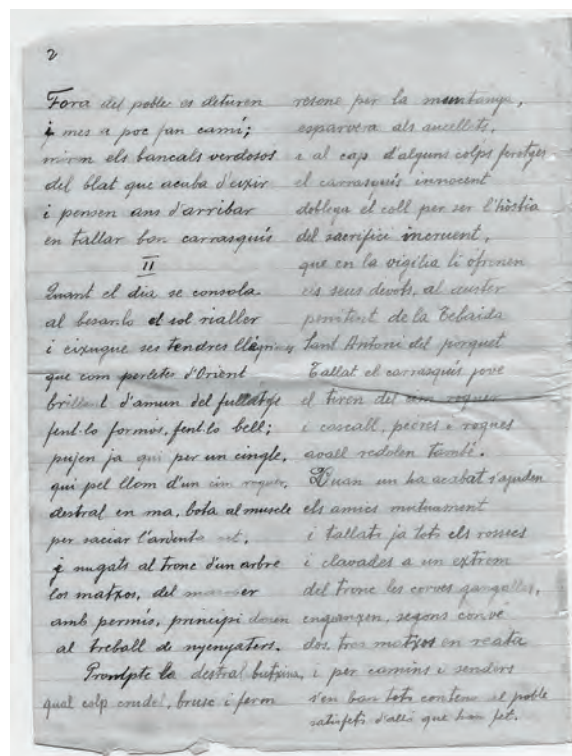 2
Fora del poble es deturen
i mes a poc fan camí;
miren els bancals verdosos
del blat que acaba d'eixir
i pensen ans d'arribar
en tallar bon carrasquís
II
Quant el dia se consola
al besar-lo el sol rialler
i eixugue ses tendres llágrimes
que com perletes d'Orient
brillent d'amun del fullatge
fent-lo formós, fent-lo bell;
pujen ja qui per un cingle,
qui pel llom d'un cim roquer,
destral en ma, bota al muscle
per saciar l'ardenta set,
i nugats al tronc d'un arbre
los matxos, del
amb permís, principi donen
al treball de nyenyaters.
Promtpte la destral butxina,
qual colp crudel, brusc i ferm
resone per la muntanya,
esparvera als aucellets,
i al cap d'alguns colps feretges
el carrasquís innocent
doblega el coll per ser l'hòstia
del sacrifici incruent,
que en la vigilia li ofrenen
els seus devots, al auster
penitent de la Tebaida
Sant Antoni del porquet
Tallat el carrasquís jove
el tiren del cim roquer
i cascall, pedres i roques
avall redolen també.
Quan un ha acabat s'ajuden
els amics mutuament
i tallats ja tots els rossecs
i clavades a un extrem
del tronc les corves gangalles,
enganxen, segons convé
dos, tres matxos en reata
i per camins i senders
s'en van tots contens al poble
satisfets d'allò que han fet.